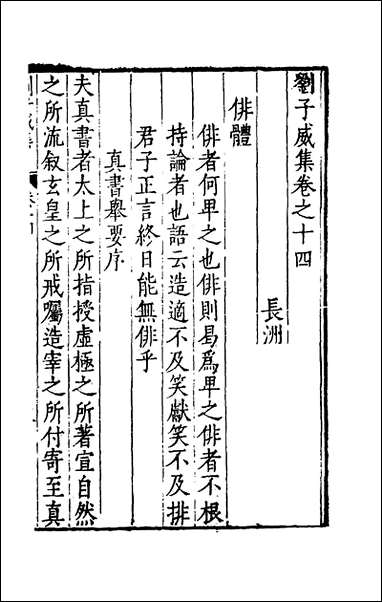 劉子威集卷之十四
長洲
俳體
俳者何卑之也俳則曷爲卑之俳者不根
持論者也語云造適不及笑獻笑不及排
君子正言終日能無俳乎
真書舉要序
夫真書者太上之所指授虛極之所著宣自然
之所流叙玄皇之所戒囑造宰之所付寄至真